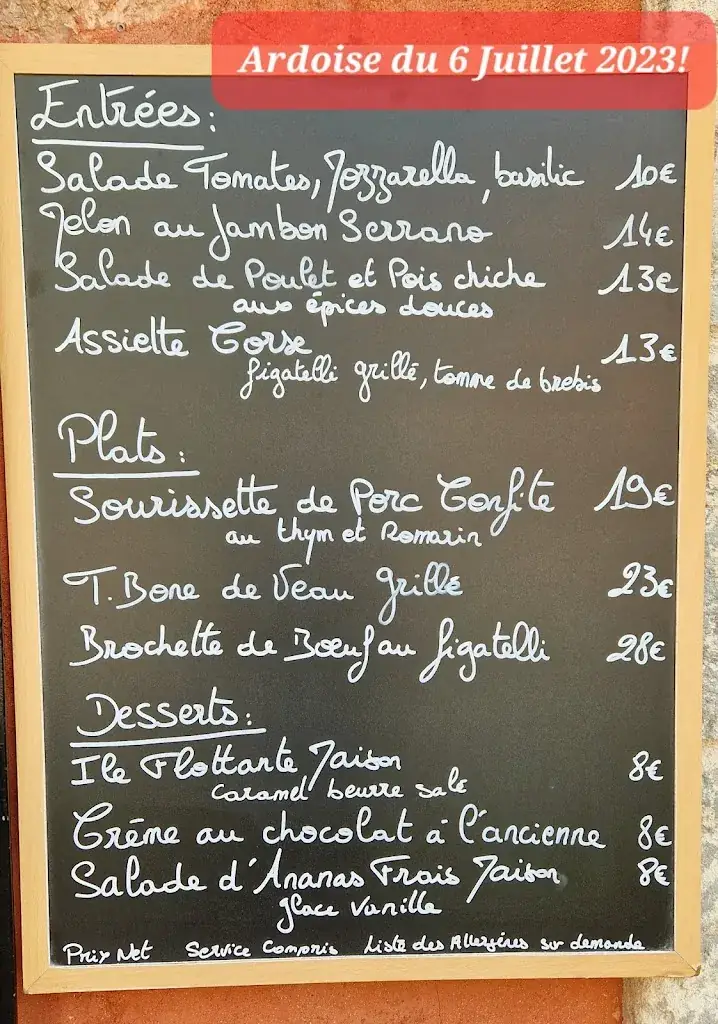 Ardoise du 6 Juillet 2023!
Entrées:
Salade Tomates, Mozzarella, basilic 10€
Melon au Jambon Serrano 14€
Salade de Poulet et Pois chiche 13€
aux épices douces
Assiette Corse 13€
figatelli grillé, tomme de brebis
Plats:
Sourissette de Porc Confite 19€
au thym et Romarin
T. Bone de Veau grillé 23€
Brochette de Boeuf au figatelli 28€
Desserts:
Ile Flottante Maison 8€
caramel beurre salé
Crème au chocolat à l'ancienne 8€
Salade d'Ananas Frais Maison 8€
glace vanille
Prix Net Service Compris Liste des Allergénes sur demande